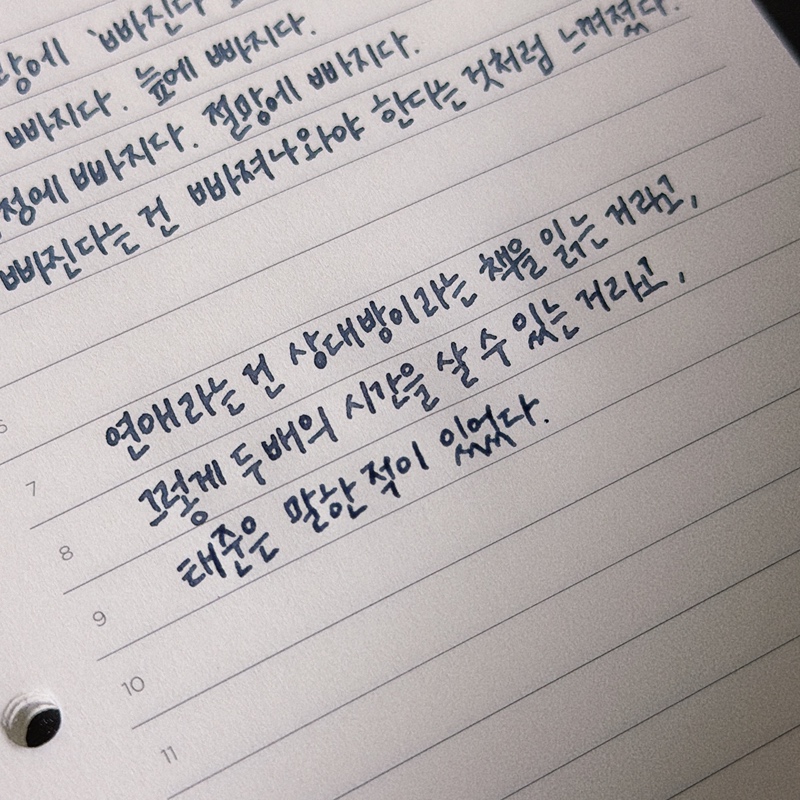 '빠진다
빠지다. 늪에 빠지다.
정에 빠지다. 절망에 빠지다.
빠진다는 건 빠져나와야 한다는 것처럼 느껴졌다.
연애라는 건 상대방이라는 책을 읽는 거라고,
그렇게 두배의 시간을 살 수 있는 거라고,
태준은 말한적이 있었다.
6
7
8
9
10
11